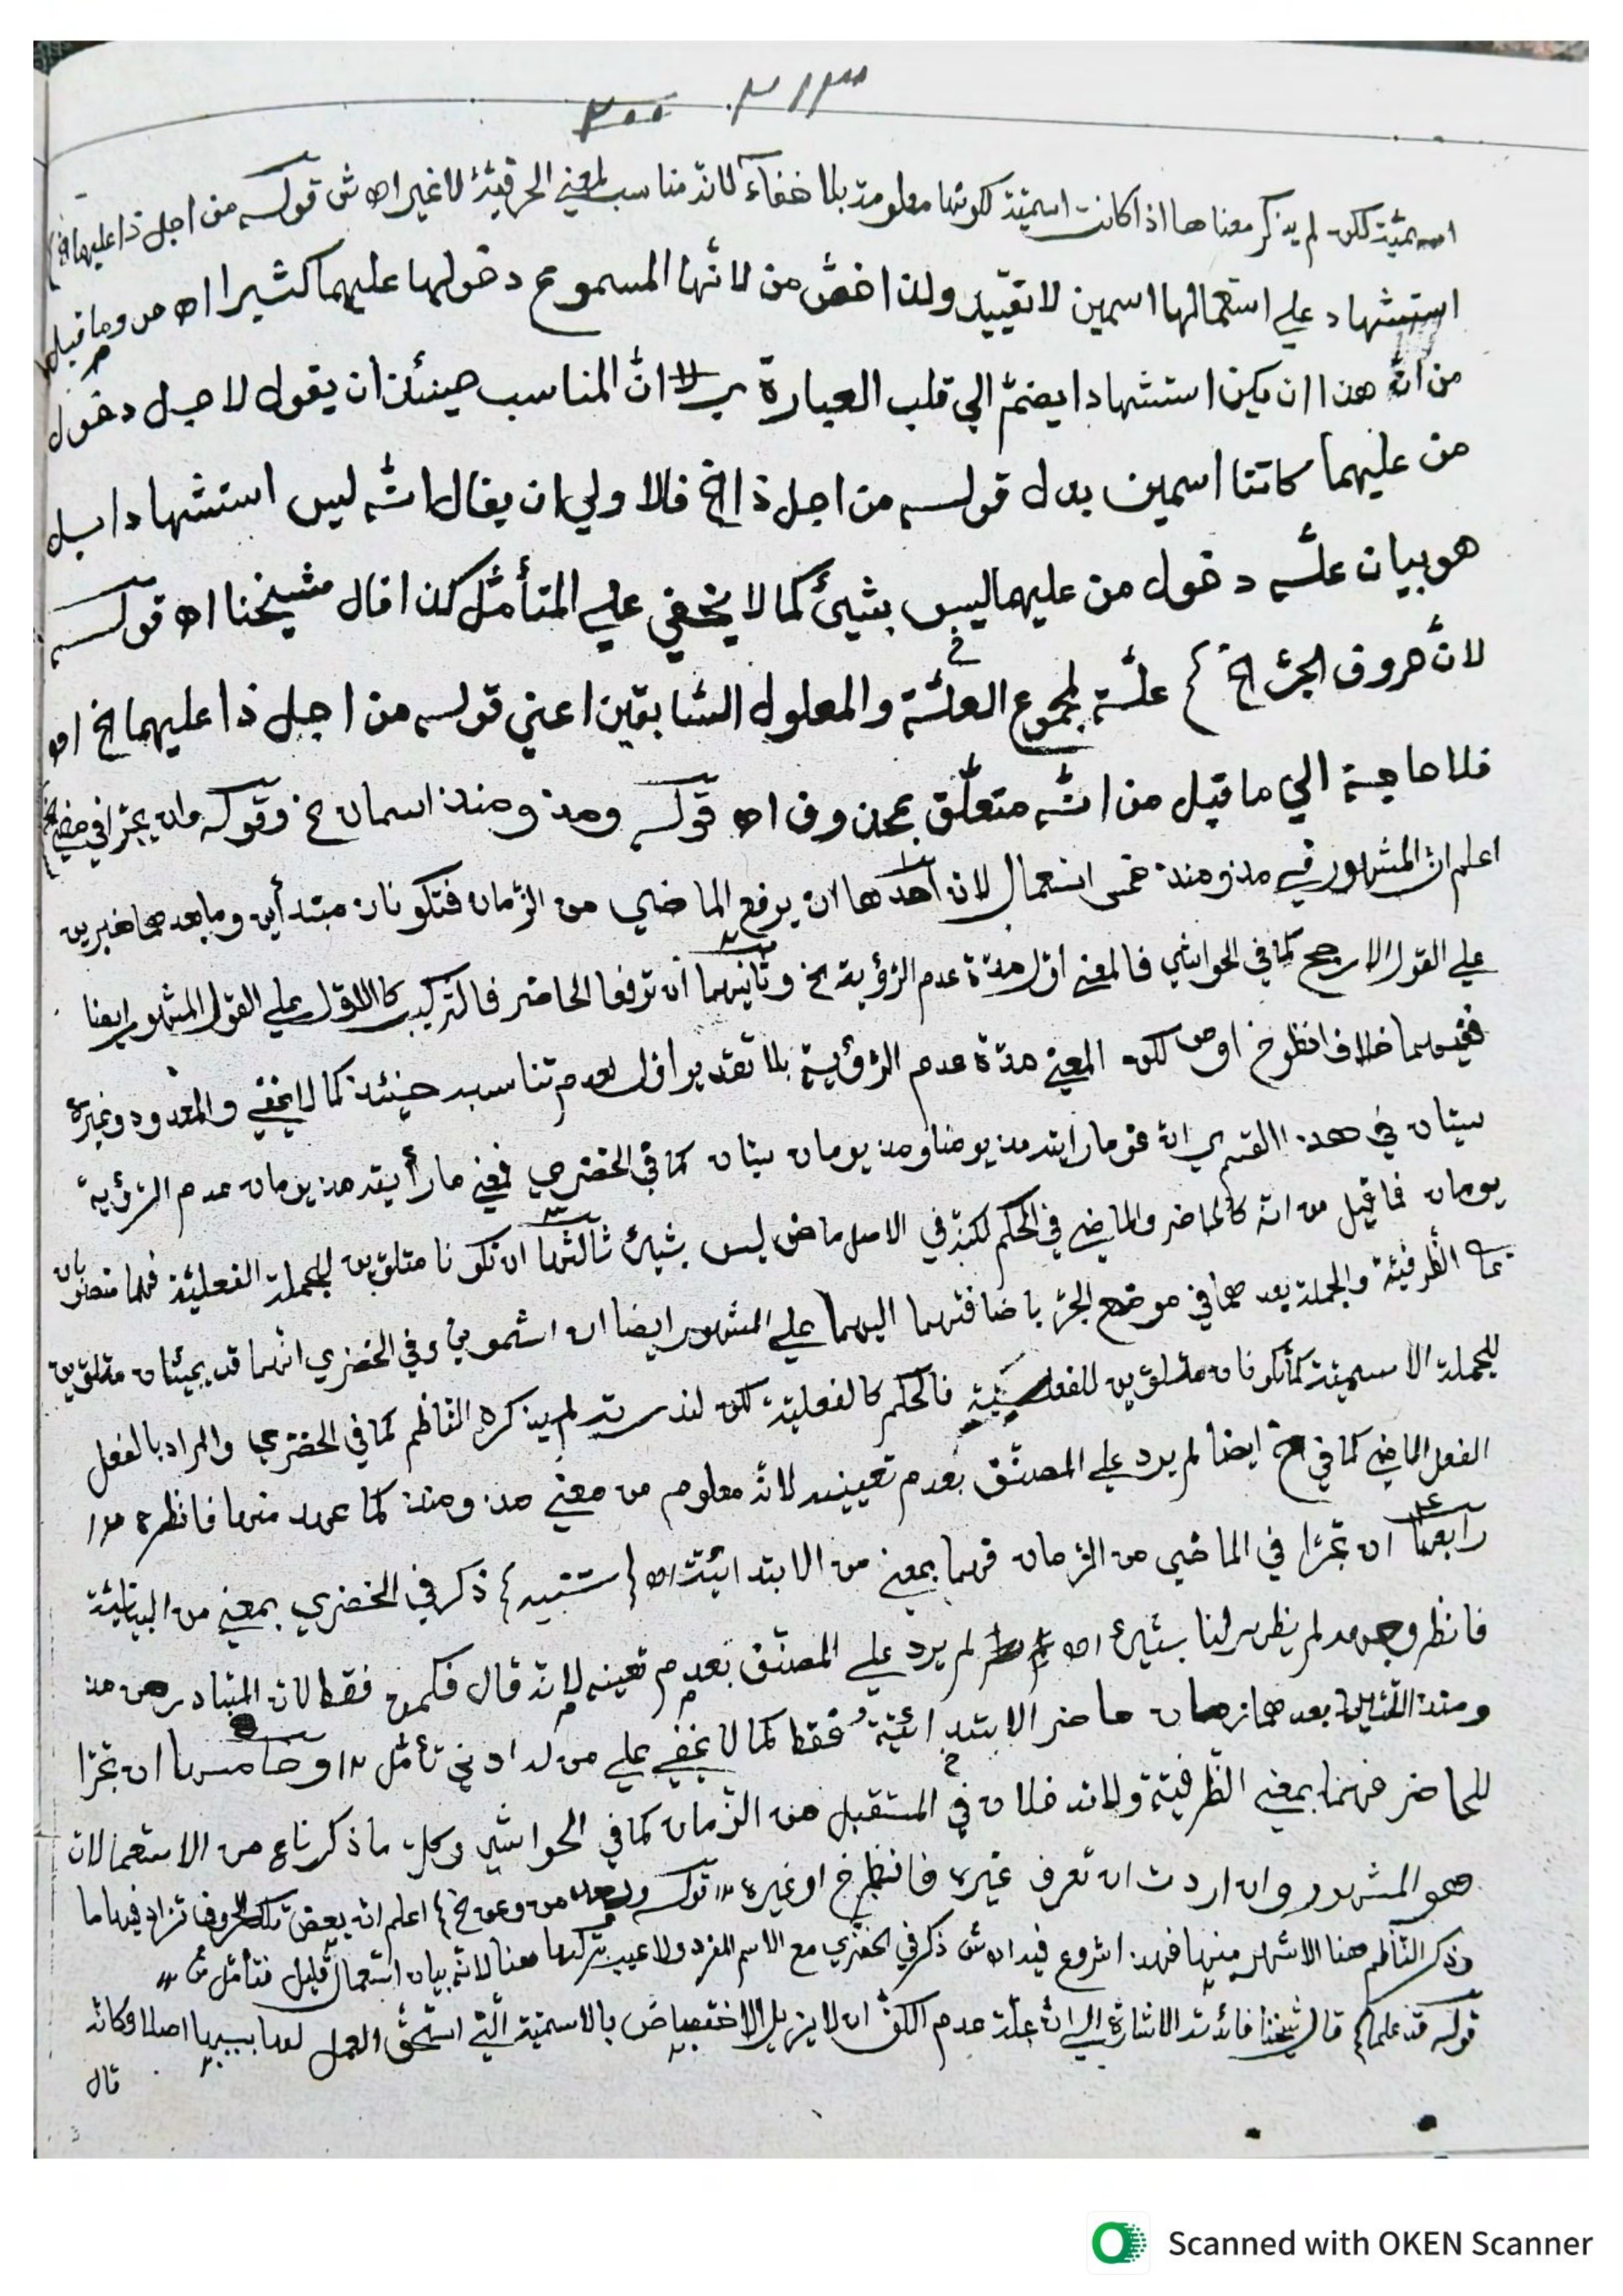 اسميّة لكن لم يذكر معناها اذا كانت اسميّة لكونها معلومة بلا خفاء لانّه مناسب لمعني الحرفيّة لا غير اه ش قوله من اجل ذا عليهما الخ
استشهاد علي استعمالها اسمين لا تقييد ولذا خصّ من لانّها المسموع دخولها عليهما كثيرا اه ص وما قيل
من انّه هذا ان يكن استشهادا يضمّ الي قلب العبارة لانّ المناسب حينئذ ان يقول لاجل دخول
من عليهما كانتا اسمين بدل قوله من اجل ذا الخ فالاولي ان يقال انّه ليس استشهادا بل
هو بيان علّة دخول من عليهما ليس بشيئ كما لا يخفي علي المتأمّل كذا قال شيخنا اه قوله
لانّ حروف الجرّ الخ } علّة لمجموع العلّة والمعلول السّابقين اعني قوله من اجل ذا عليهما الخ اه
فلا حاجة الي ما قيل من انّه متعلّق بمحذوف اه قوله ومذ ومنذ اسمان خ وقوله وان يجرّا في مضيّ الخ
اعلم انّ المشهور في مذ ومنذ خمس استعمالان احدها ان يرفع الماضي من الزّمان فتكونان مبتدأين وما بعدهما خبرين
علي القول الارجح كما في الحواشي فالمعني اوّل مدّة عدم الرّؤية الخ وثانيهما ان ترفعا الحاضر فالتّركيب كالاوّل علي القول المشهور ايضا
ففيهما خلاف انظر خ او ص لكن المعني مدّة عدم الرّؤية بلا تقدير اوّل لعدم تناسبه حينئذ كما لا يخفي والمعدود وغيره
سيّان في هذا القسم اي انّ نحو ما رايته مذ يومنا ومذ يومان سيّان كما في الخضري فمعني ما رأيته مذ يومان عدم الرّؤية
يومان فما قيل من انّه كالحاضر والماضي في الحكم لكنّه في الاصل ماض ليس بشيئ ثالثها ان تكونا متلوّين للجملة الفعليّة فهما منصوبان
بما الظّرفيّة والجملة بعدهما في موضع الجرّ باضافتهما اليهما علي المشهور ايضا اه اشموني وفي الخضري انّهما قد يجيئان متلوّين
للجملة الاسميّة كما تكونان متلوّين للفعليّة فالحكم كالفعليّة لكن لندرته لم يذكره النّاظم كما في الخضري والمراد بالفعل
الفعل الماضي كما في خ ايضا لم يرد علي المصنّف بعدم تعيينه لانّه معلوم من معني مذ ومنذ كما عهد منهما فانظره ١٢
رابعها ان تجرّا في الماضي من الزّمان فهما بمعني من الابتدائيّة اه { تنبيه } ذكر في الخضري بمعني من البيانيّة
فانظر وجهه لم يظهر لنا بشيئ اه لم يرد علي المصنّف بعدم تعينه لانّه قال فكمن فقط لانّ المتبادر من مذ
ومنذ اللّتين بعدهما زمان حاضر الابتدائيّة فقط كما لا يخفي علي من له ادني تأمّل ١٢ وخامسها ان تجرّا
للحاضر فهما بمعني الظّرفيّة ولا تدخلان في المستقبل من الزّمان كما في الحواشي وكلّ ما ذكرناه من الاستعمالات
هو المشهور وان اردت ان تعرف غيره فانظر خ او غيره ١٢ قوله وبعد من وعن خ } اعلم انّ بعض تلك الحروف تزاد فيها ما
وذكر النّاظم هنا الاشهر منها فهذا شروع فيه اه ش ذكر في الخضري مع الاسم المفرد ولا عيب بتركها هنا لانّه بيان استعمال قليل فتأمّل ش ١٢
قوله قد علما } قال شيخنا فائدته الاشارة الي انّ علّة عدم الكفّ ان لا يزيل الاختصاص بالاسميّة الّتي استحقّ العمل لها بسببها اصلا وكانّه
قال
Scanned with OKEN Scanner